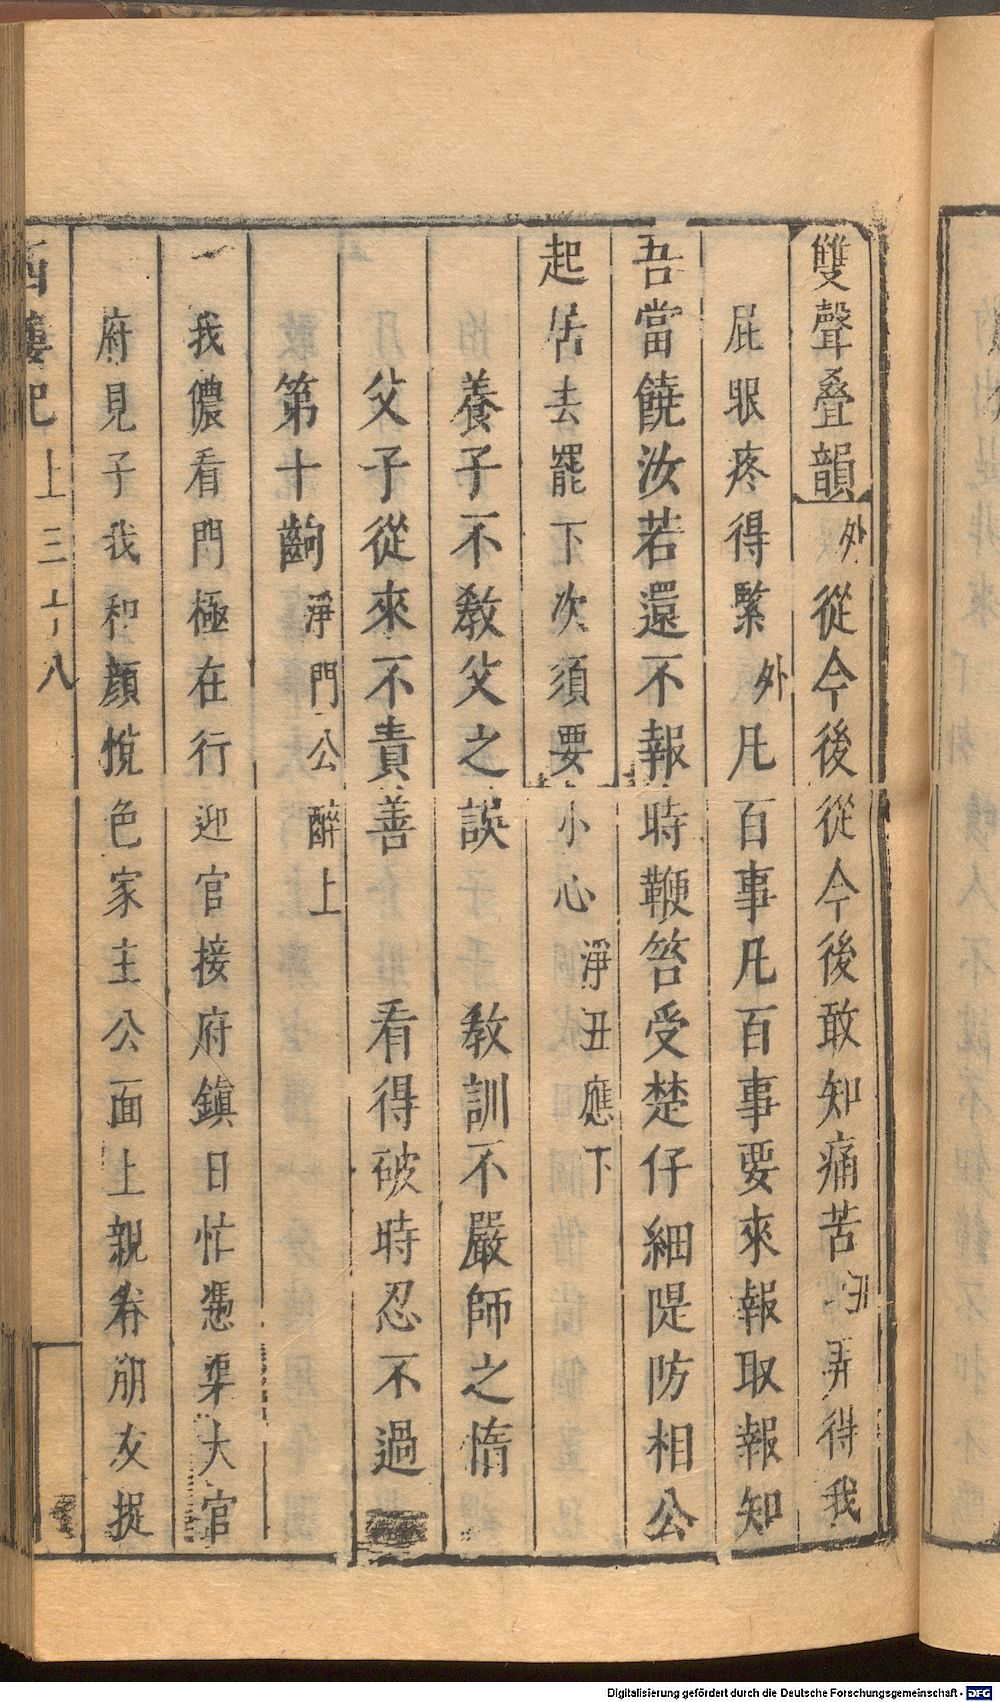 雙聲叠韻外從今後從今後敢知痛苦丑弄得我
屁眼疼得緊外凡百事凡百事要來報取報知
吾當饒汝若還不報時鞭笞受楚仔細隄防相公
起居去罷下次須要小心淨丑應下
養子不教父之誤 教訓不嚴師之惰
父子從來不責善 看得破時忍不過
第十齣淨門公醉上
我儂看門極在行迎官接府鎮日忙憑渠大官
府見子我和顏悅色家主公面上親眷朋友捉
西樓記 上 三十八
Digitalisierung gefördert durch die Deutsche Forschungsgemeinschaft - DFG